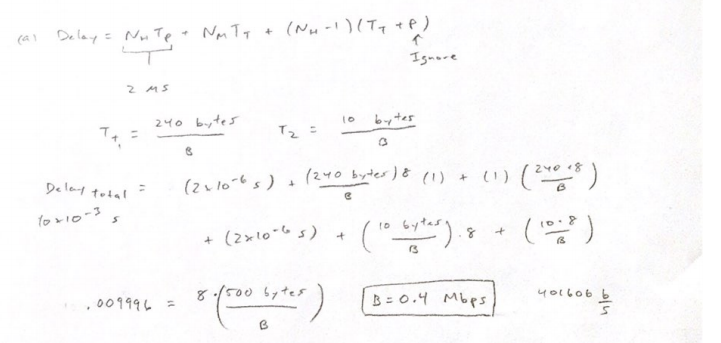 (a) Delay = N_H T_P + N_M T_T + (N_H - 1)(T_T + P)
↑
Ignore
2 ms
T_T1 = 240 bytes / B    T_2 = 10 bytes / B
Delay total = (2x10^-6 s) + (240 bytes)8 / B (1) + (1) (240 · 8 / B)
10x10^-3 s
+ (2x10^-6 s) + (10 bytes / B) · 8 + (10 · 8 / B)
.009996 = 8 · (500 bytes / B)    B = 0.4 Mbps    401606 b/s